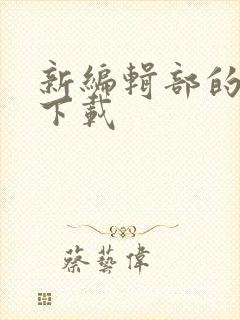 新編輯部的
下載
蔡藝偉